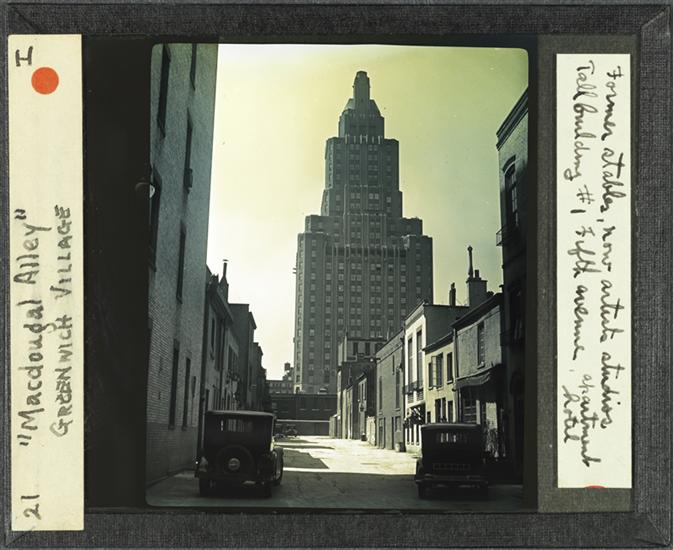 I
21 "Macdougal Alley"
GREENWICH VILLAGE
Former stables, now artists studios
Tall building #1 Fifth avenue, apartment
hotel